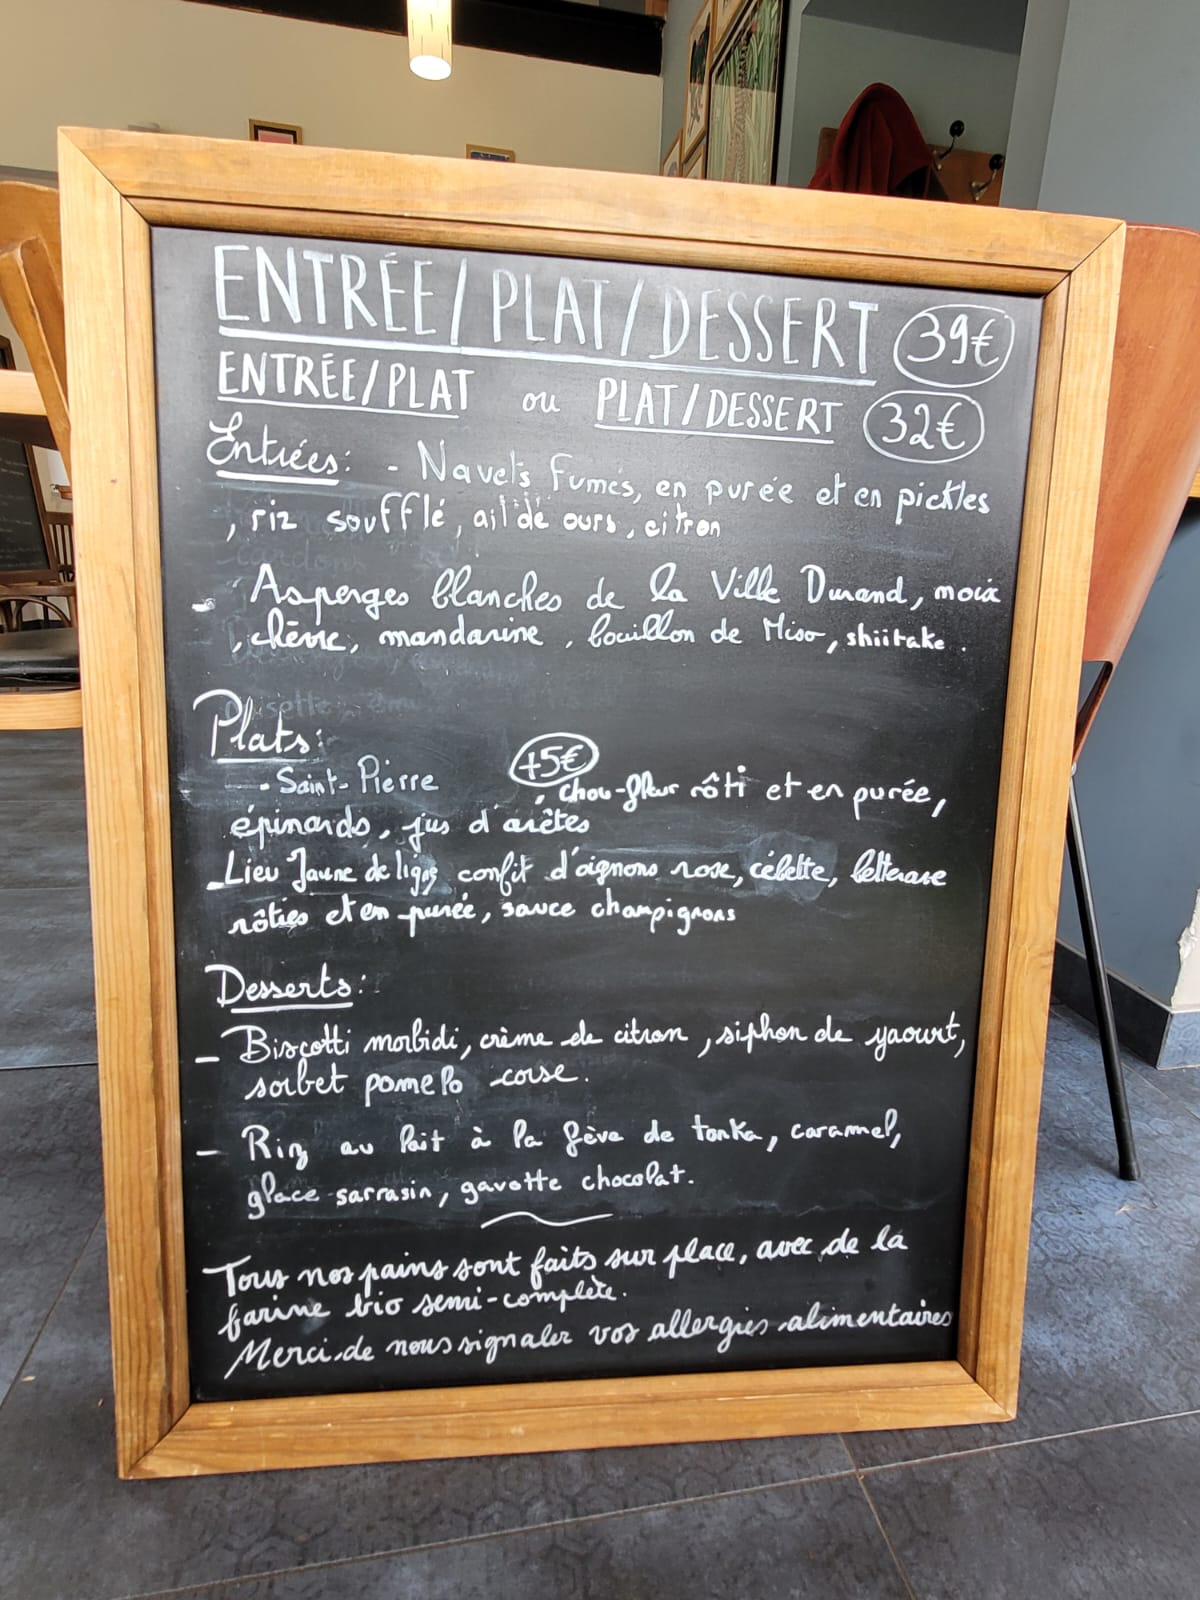 ENTRÉE/PLAT/DESSERT 39€
ENTRÉE/PLAT ou PLAT/DESSERT 32€
Entrées: - Navets Fumés, en purée et en pickles
, riz soufflé, ail de ours, citron
- Asperges blanches de la Ville Durand, moix
, chèvre, mandarine, bouillon de Miso, shiitake.
Plats:
- Saint-Pierre +5€, chou-fleur rôti et en purée,
épinards, jus d'arêtes
- Lieu Jaune de ligne confit d'oignons rose, cébette, betterave
rôties et en purée, sauce champignons
Desserts:
- Biscotti morbidi, crème de citron, siphon de yaourt,
sorbet pomelo corse.
- Riz au lait à la fève de tonka, caramel,
glace sarrasin, gavotte chocolat.
Tous nos pains sont faits sur place, avec de la
farine bio semi-complète.
Merci de nous signaler vos allergies alimentaires